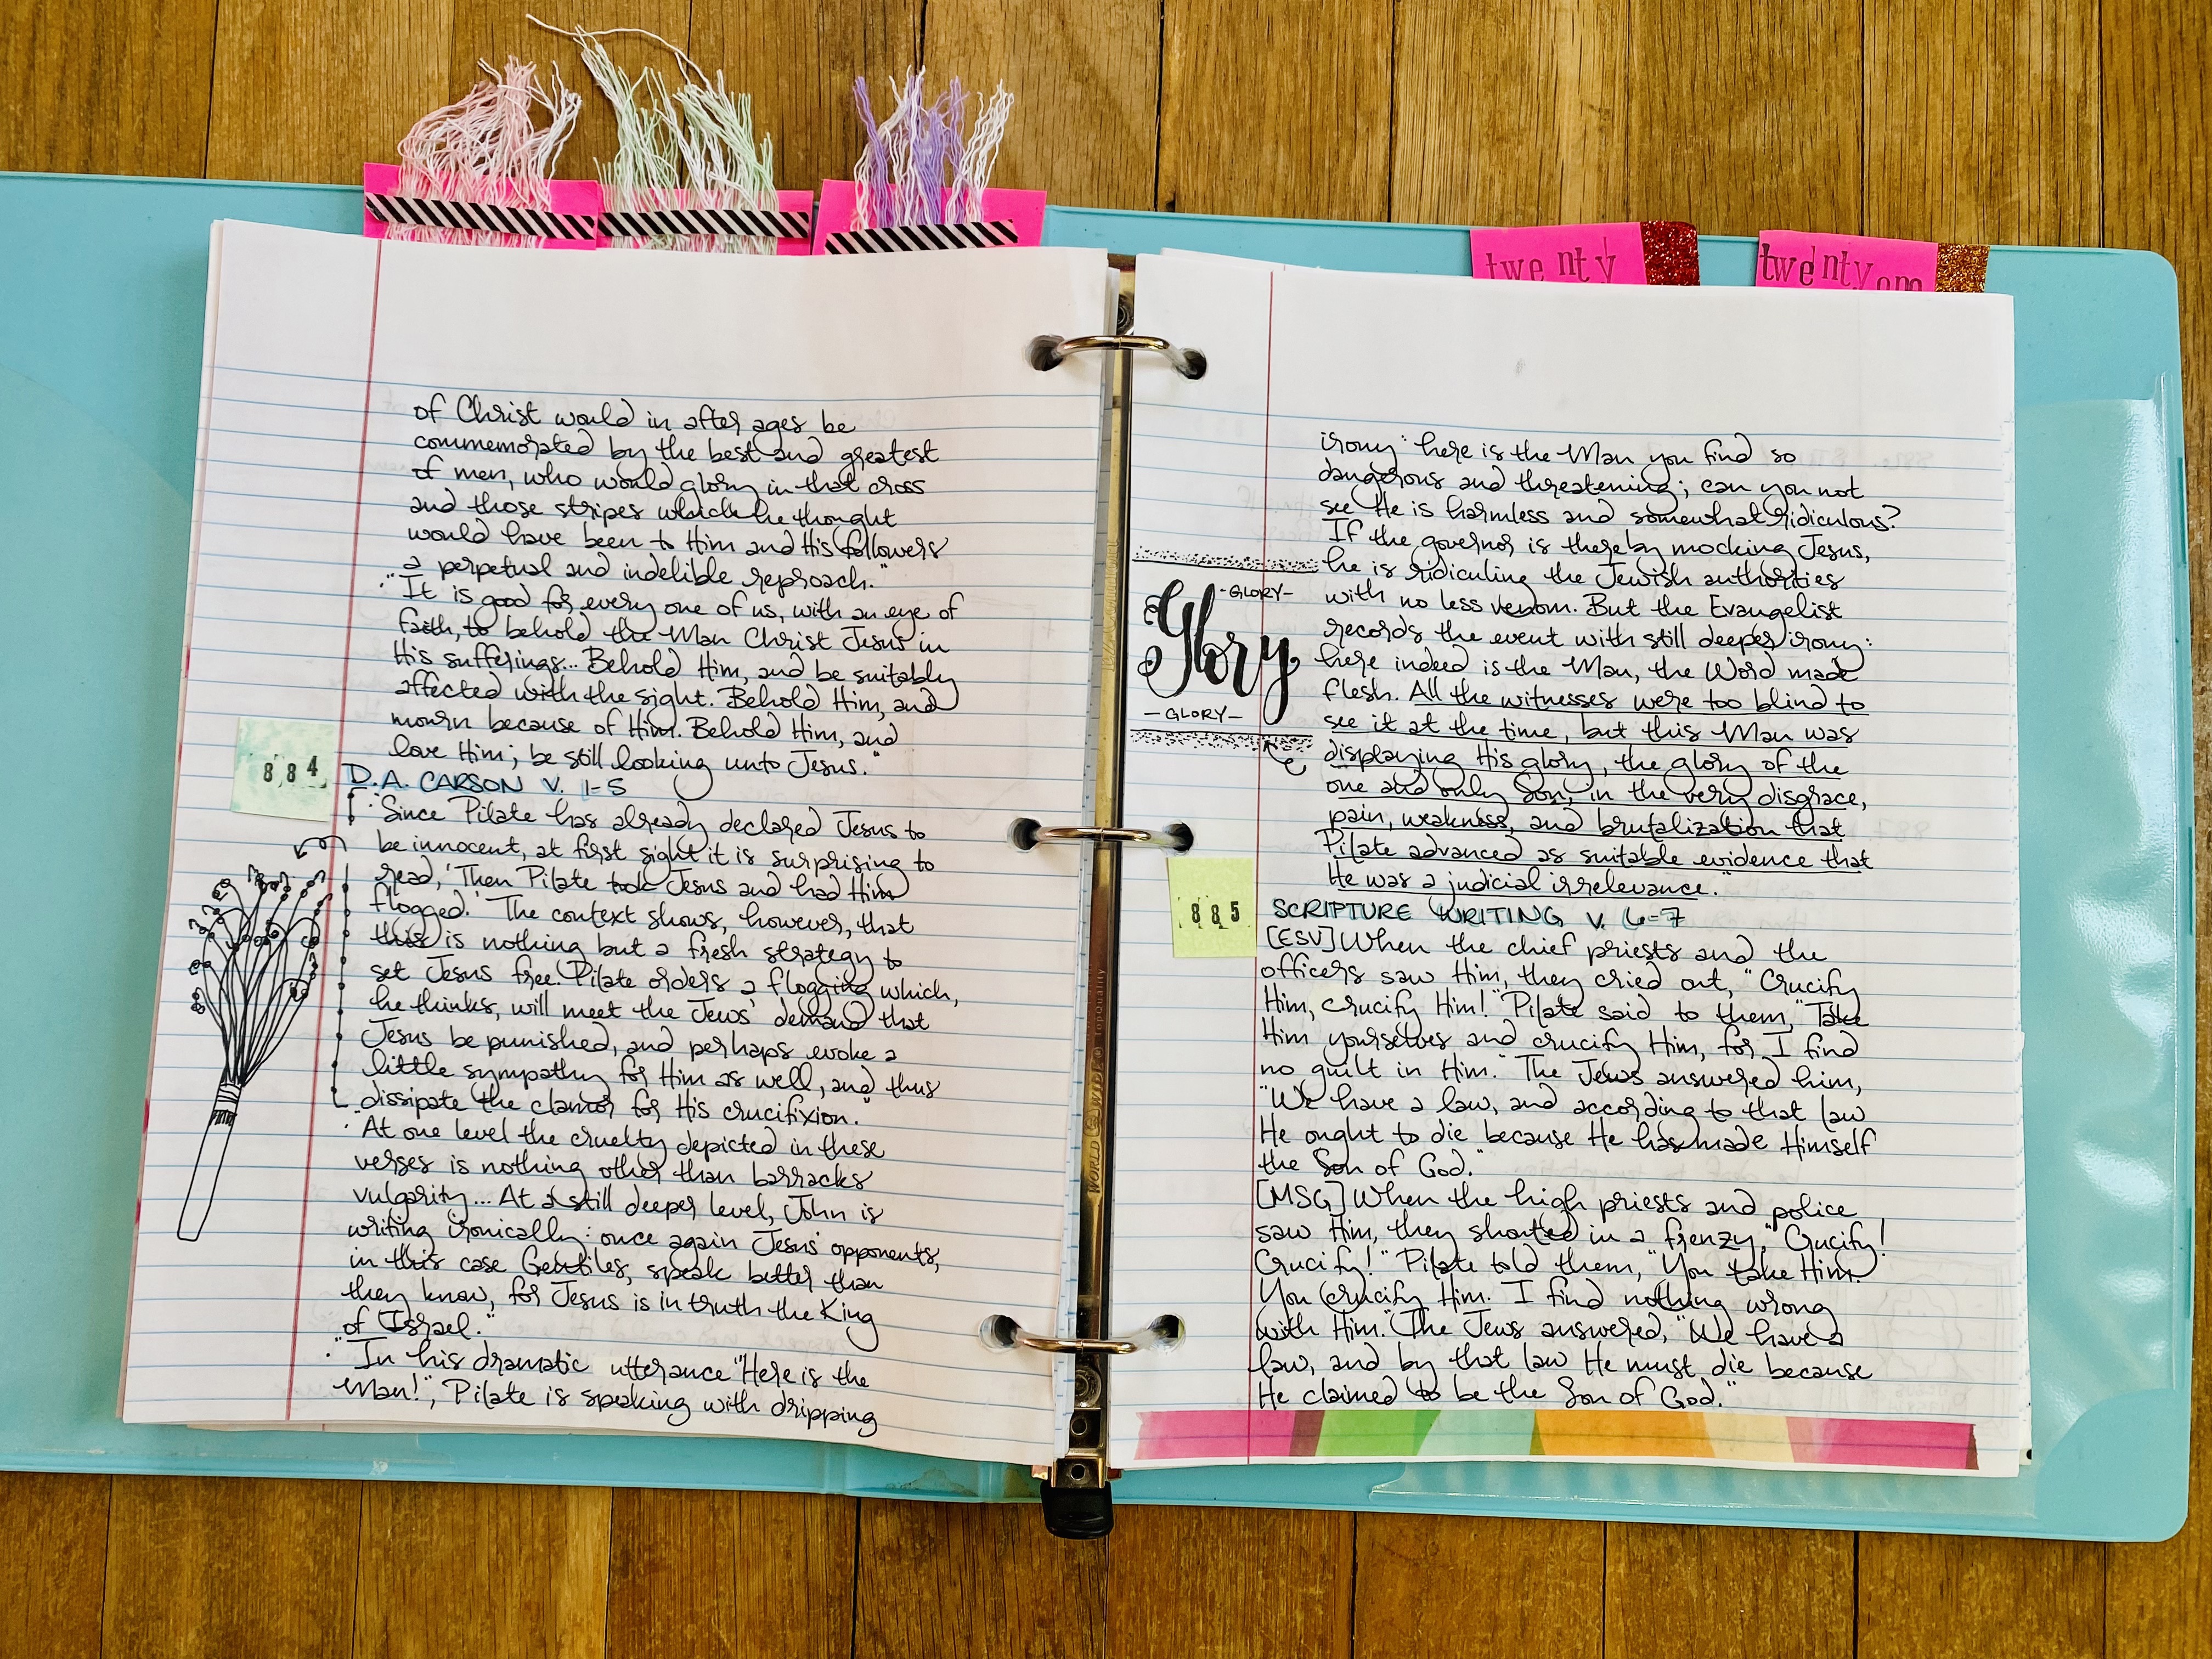 twenty
twenty one
of Christ would in after ages be
commemorated by the best and greatest
of men, who would glory in that cross
and those stripes which he thought
would have been to Him and His followers
a perpetual and indelible reproach."
· "It is good for every one of us, with an eye of
faith, to behold the Man Christ Jesus in
His sufferings... Behold Him, and be suitably
affected with the sight. Behold Him, and
mourn because of Him. Behold Him, and
love Him; be still looking unto Jesus."
884
D.A. CARSON V. 1-5
· "Since Pilate has already declared Jesus to
be innocent, at first sight it is surprising to
read, 'Then Pilate took Jesus and had Him
flogged.' The context shows, however, that
this is nothing but a fresh strategy to
set Jesus free. Pilate orders a flogging which,
he thinks, will meet the Jews' demand that
Jesus be punished, and perhaps evoke a
little sympathy for Him as well, and thus
dissipate the clamor for His crucifixion."
· "At one level the cruelty depicted in these
verses is nothing other than barracks
vulgarity... At a still deeper level, John is
writing ironically: once again Jesus' opponents,
in this case Gentiles, speak better than
they know, for Jesus is in truth the King
of Israel."
· "In his dramatic utterance "Here is the
Man!", Pilate is speaking with dripping
WORLD WIDE TopQuality
irony: here is the Man you find so
dangerous and threatening; can you not
see He is harmless and somewhat ridiculous?
If the governor is thereby mocking Jesus,
he is ridiculing the Jewish authorities
with no less venom. But the Evangelist
records the event with still deeper irony:
here indeed is the Man, the Word made
flesh. All the witnesses were too blind to
see it at the time, but this Man was
displaying His glory, the glory of the
one and only Son, in the very disgrace,
pain, weakness, and brutalization that
Pilate advanced as suitable evidence that
He was a judicial irrelevance."
-GLORY-
Glory
-GLORY-
885
SCRIPTURE WRITING V. 6-7
[ESV] When the chief priests and the
officers saw Him, they cried out, "Crucify
Him, crucify Him!" Pilate said to them, "Take
Him yourselves and crucify Him, for I find
no guilt in Him." The Jews answered him,
"We have a law, and according to that law
He ought to die because He has made Himself
the Son of God."
[MSG] When the high priests and police
saw Him, they shouted in a frenzy, "Crucify!
Crucify!" Pilate told them, "You take Him.
You crucify Him. I find nothing wrong
with Him." The Jews answered, "We have a
law, and by that law He must die because
He claimed to be the Son of God."